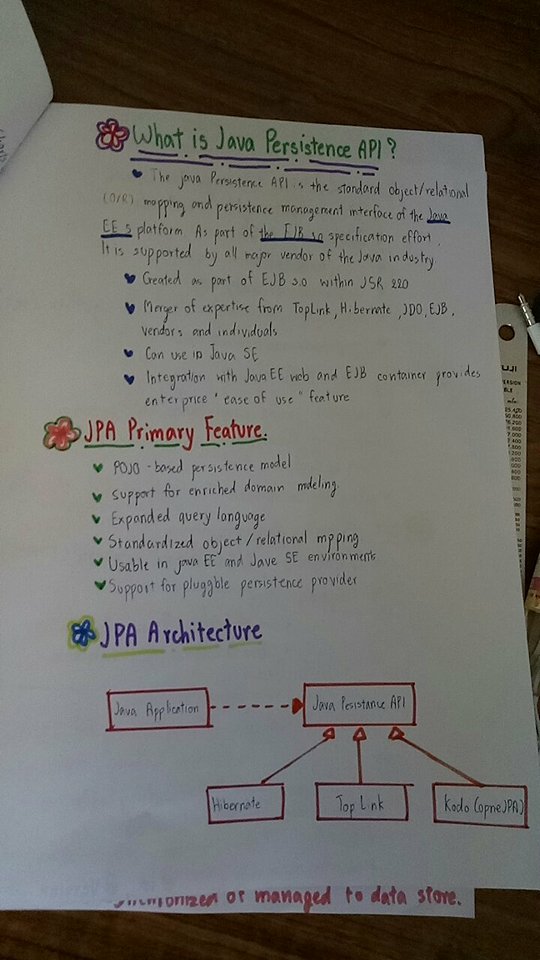 What is Java Persistence API?
The java Persistence API is the standard object/relational
(O/R) mapping and persistence management interface of the Java
EE 5 platform. As part of the EJB 3.0 specification effort.
It is supported by all major vendor of the Java industry.
Created as part of EJB 3.0 within JSR 220
Merger of expertise from TopLink, Hibernate, JDO, EJB,
vendors and individuals
Can use in Java SE
Integration with Java EE web and EJB container provides
enterprice "ease of use" feature
JPA Primary Feature.
POJO-based persistence model
Support for enriched domain modeling
Expanded query language
Standardized object/relational mpping
Usable in java EE and Jave SE environments
Support for pluggble persistence provider
JPA Architecture
Java Application
Java Pesistance API
Hibernate
Top Link
Kodo (opneJPA)
or managed to data store.